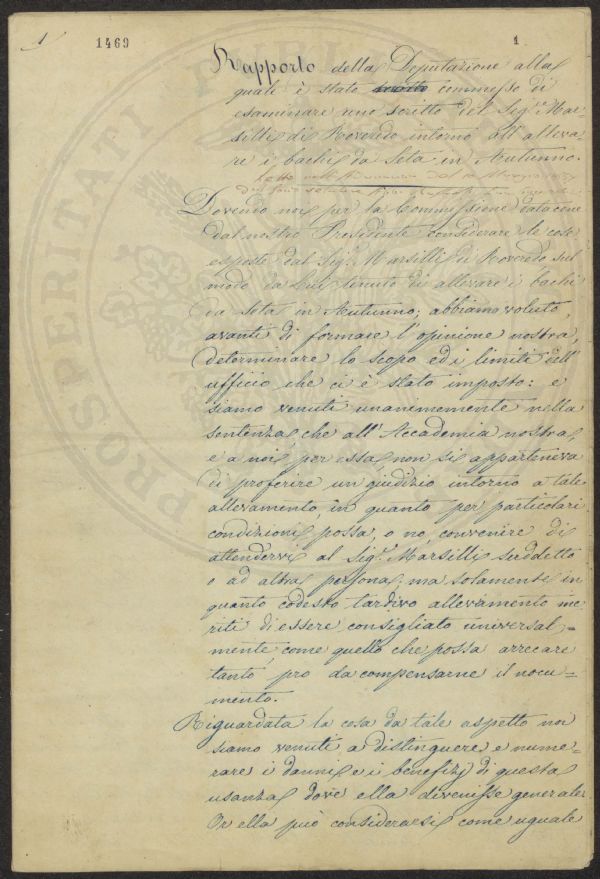 1 1469 1
Rapporto della Deputazione alla
quale è stato commesso di
esaminare uno scritto del Sig.r Mar-
silli di Roveredo intorno all'alleva-
re i bachi da Seta in Autunno.
Letto nell'Adunanza del
Dovendo noi per la Commissione dataci
dal nostro Presidente considerare le cose
esposte dal Sig.r Marsilli di Roveredo sul
modo da Lui tenuto di allevare i bachi
da Seta in Autunno; abbiamo voluto,
avanti di formare l'opinione nostra,
determinare lo scopo ed i limiti dell'
ufficio che ci è stato imposto: e
siamo venuti unanimemente nella
sentenza, che all'Accademia nostra,
e a noi per essa, non si apparteneva
di proferire un giudizio intorno a tale
allevamento, in quanto per particolari
condizioni possa, o no, convenire di
attendervi al Sig.r Marsilli suddetto
o ad altra persona; ma solamente in
quanto codesto tardivo allevamento me-
riti di essere consigliato universal-
mente, come quello che possa arrecare
tanto pro da compensarne il nocu-
mento.
Riguardata la cosa da tale aspetto noi
siamo venuti a distinguere e nume-
rare i danni e i benefizj di questa
usanza, dove ella divenisse generale.
Or ella può considerarsi come uguale
PROSPERITATI PUBLICAE